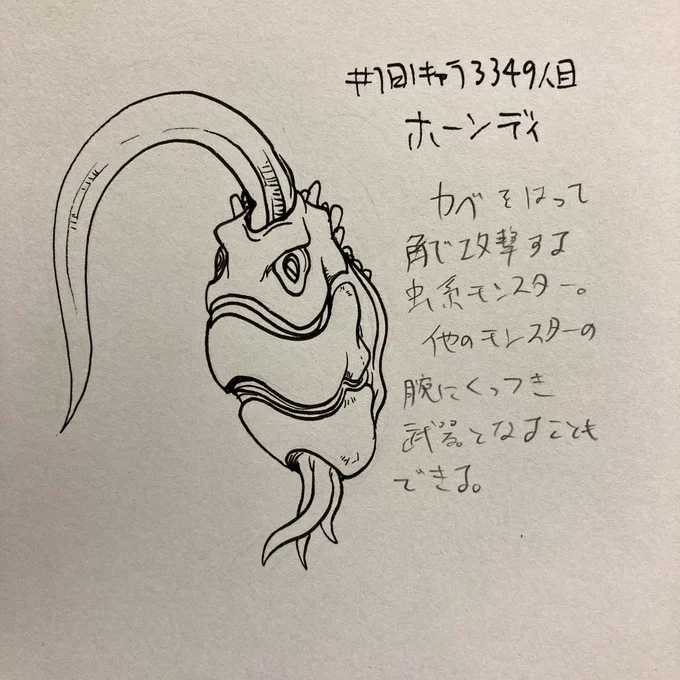 #1日1キャラ3349人目
ホーンディ
カベをはって
角で攻撃する
虫系モンスター。
他のモンスターの
腕にくっつき
武器となすことも
できる。